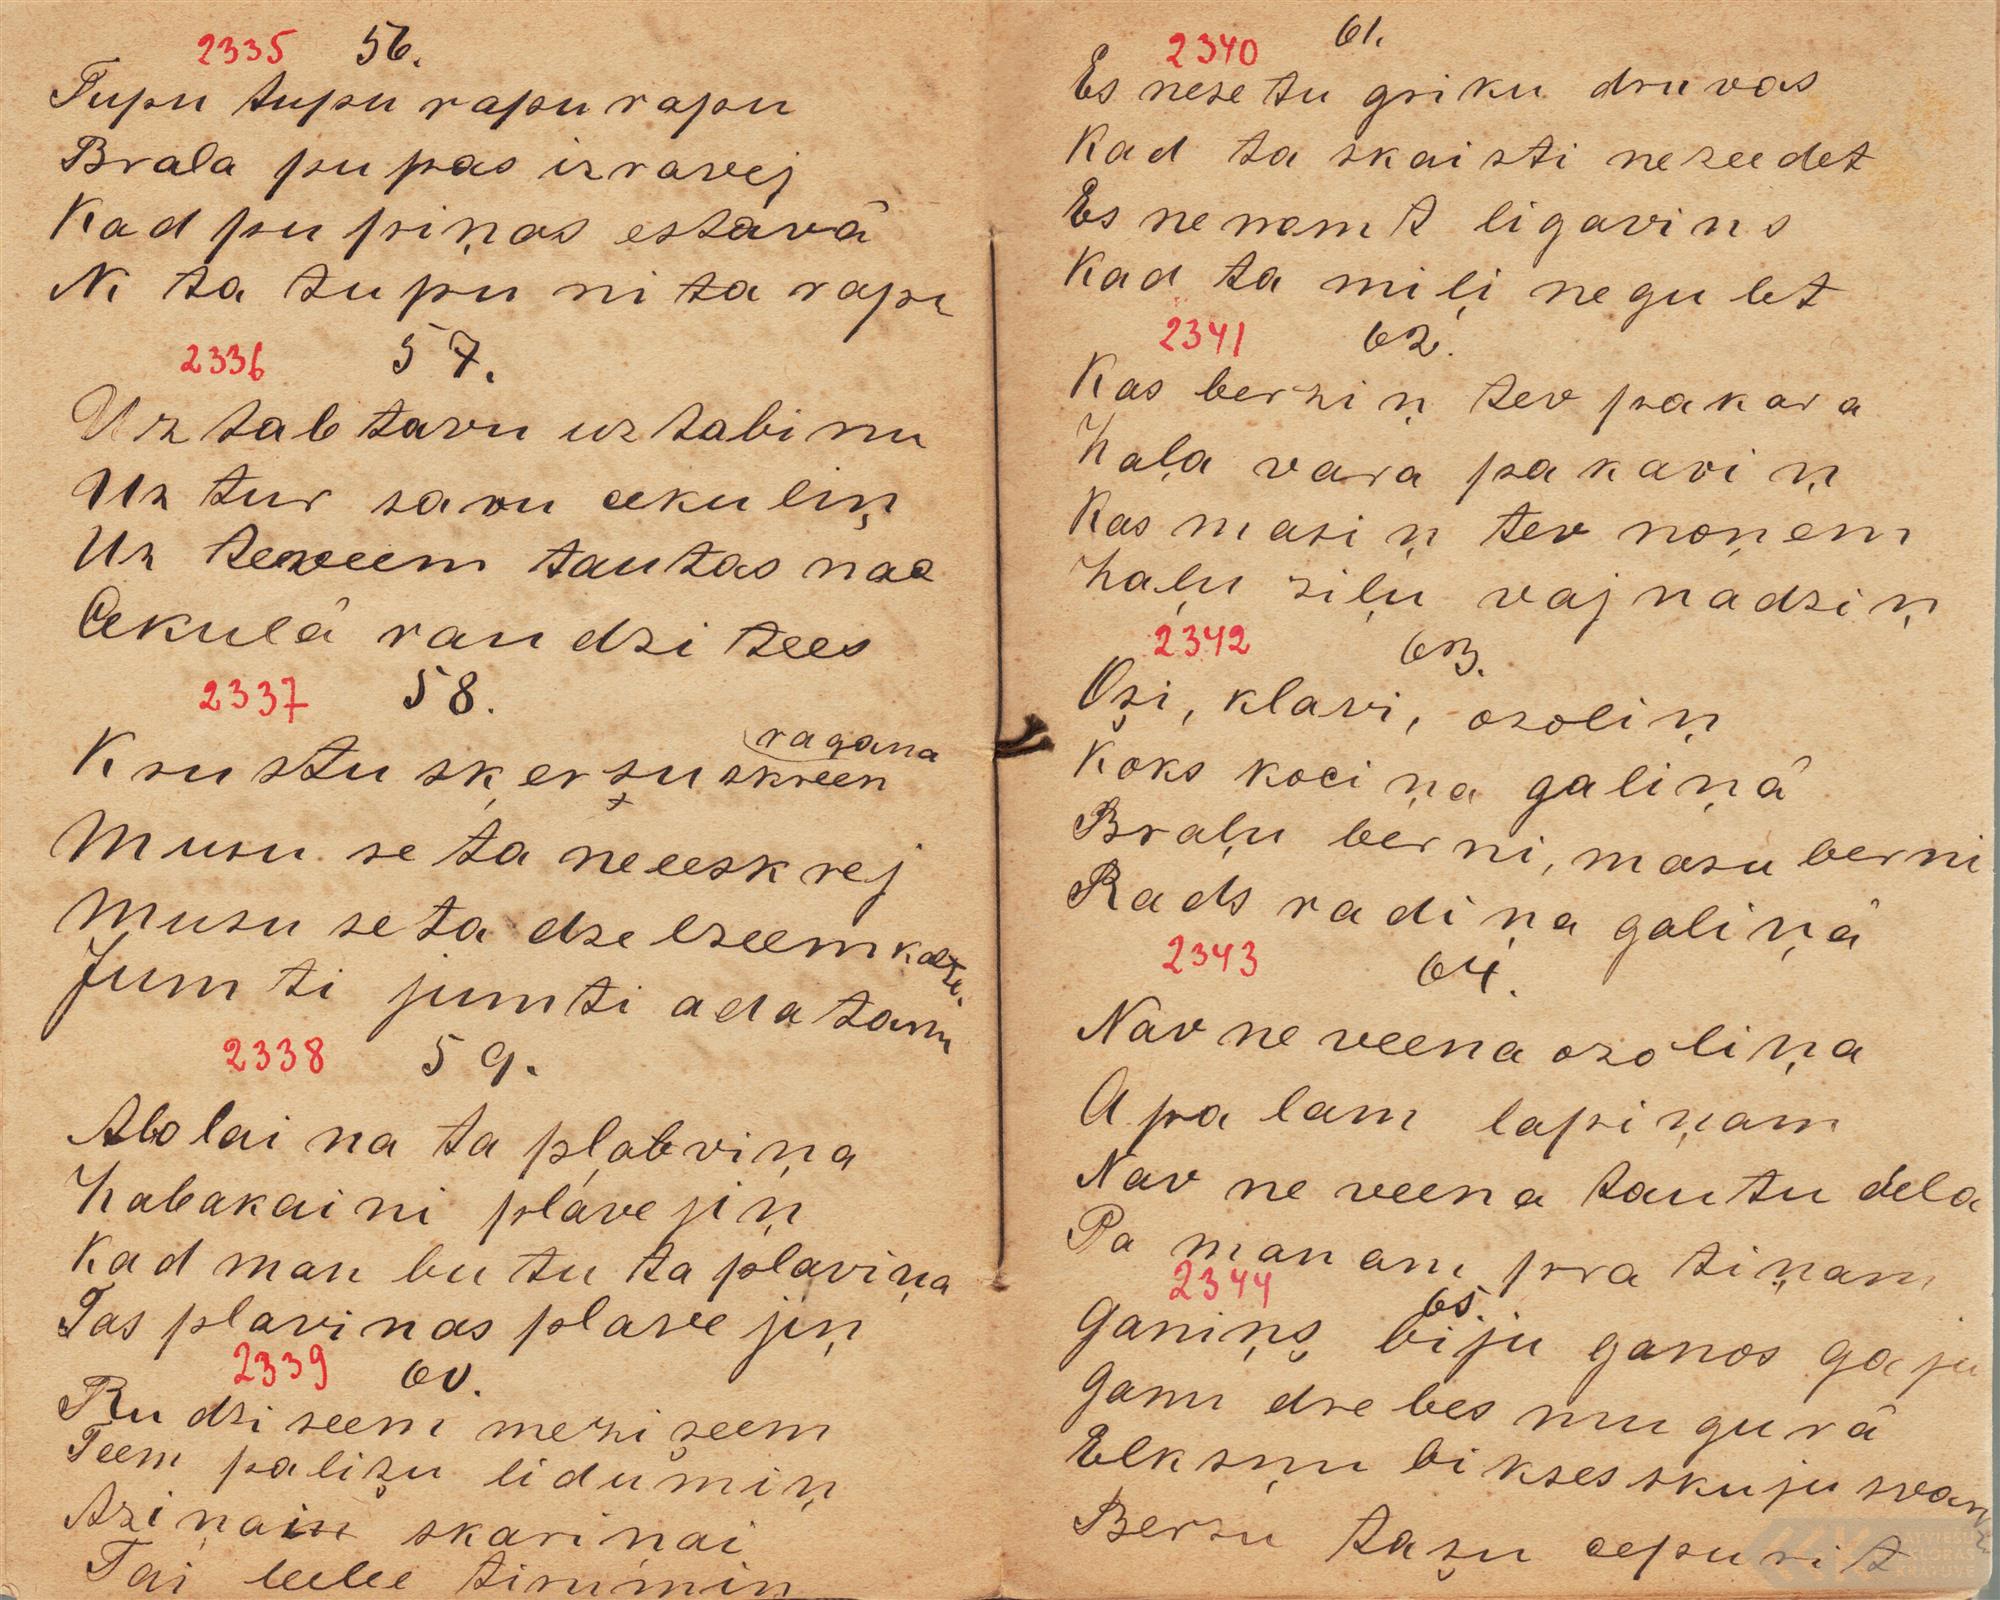 2335 56.
Tupu tupu rapu rapu
Brala pupas izravej
Kad pupiņas estavā
Ni ta tupu ni ta rapu
2336 57.
Uz tabtavu uztabinu
Uz tur savu cekuliņ
Uz teveem tautas nac
Cekulā raudzitees
2337 58.
ragana
Krustu sķerşu skreen
Musu seta neeeskrej
Musu seta dzelzeem kalte.
Jumti jumti adatam
2338 59.
Abolaina ta pļabviņa
Habakaini plavejiņ
Kad man butu ta plaviņa
Tas plavinas plavejiņ
2339 60.
Rudzi seem mezi şeem
Teem palişu lidumiņ
Azinain skarinai
Tai leelee tirumin
2340 61.
Es nesetu griku druvas
Kad ta skaisti nezeedet
Es nenemt ligavins
Kad ta miļi negulet
2341 62.
Kas berziņ tev pakara
Haļa vara pakariņ
Kas masiņ tev noņem
Haļu ziļu vajnadziņ
2342 63.
Oşi, klavi, ozoliņ
Koks kociņa galiņā
Braļu berni, masu berni
Rads radiņa galiņā
2343 64.
Nav ne veena ozoliņa
Apalam lapiņam
Nav ne veena tautu dela
Pa manam pratiņam
2344 65.
Ganiņş biju ganos gaju
Ganu drebes mugurā
Elksņu bikses skuju svar
Berzu taşu cepurit
LATVIEŠU
FOLKLORAS
KRĀTUVE